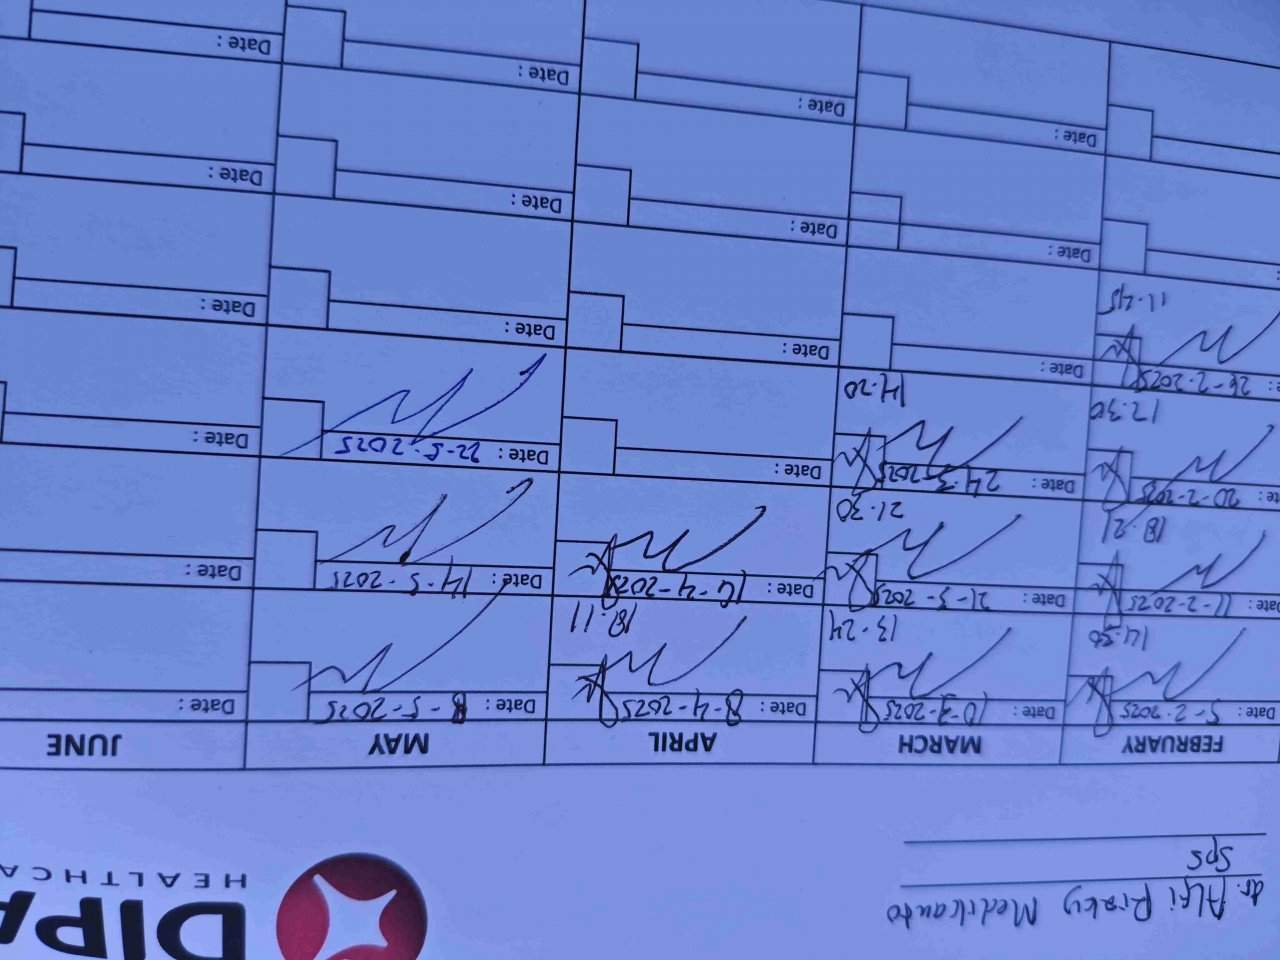 DIPA
HEALTHCA
dr. Alfi Rizky Medikanto
SpS
FEBRUARY MARCH APRIL MAY JUNE
Date: 5-2-2025 Date: 10-3-2025 Date: 8-4-2025 Date: 8-5-2025 Date:
14.30 13.24 18.11
Date: 11-2-2025 Date: 21-3-2025 Date: Date: 14-5-2025 Date:
18.21 21.30
20-2-2025 Date: 24-3-2025 Date: Date: 22-5-2025 Date:
12.30 14.20
26-2-2025 Date: Date: Date: Date:
11.45
Date: Date: Date: Date:
Date: Date: Date: Date: